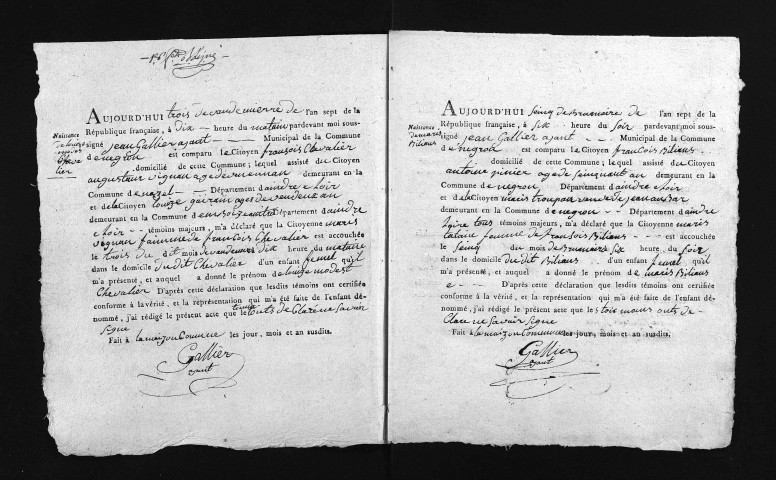 Naissance
de louize
modes
Cheva
lier
AUJOURD'HUI trois de vandemierre de l'an sept de la
République française, à dix heure du matain pardevant moi sous-
signé jean Gallier ajant Municipal de la Commune
de negron est comparu le Citoyen fransois Chevalier
domicilié de cette Commune; lequel assisté du Citoyen
augusteur vignau age de demeurant en la
Commune de nazel Département d'aindre e loir
et de la Citoyen louize age de
demeurant en la Commune d Département d'aindre
e loir témoins majeurs, m'a déclaré que la Citoyenne maris
vognau famme de francois Chevalier est accouchée
le trois du dit mois de vandemier dix heure du mataine
dans le domicile du dit Chevalier d'un enfant femel qu'il
m'a présenté, et auquel a donné le prénom de louize modest
Chevalier D'après cette déclaration que lesdits témoins ont certifiée
conforme à la vérité, et la représentation qui m'a été faite de l'enfant dé-
nommé, j'ai rédigé le présent acte que les temoins onts de Clare ne savoir
signe
Fait à la maizon Commune les jour, mois et an susdits.
Gallier
Naissance
de maris
Bilians
AUJOURD'HUI seinq de brumaire de l'an sept de la
République française, à six heure du soir pardevant moi sous-
signé jean Gallier ajant Municipal de la Commune
de negron est comparu le Citoyen francois Bilians
domicilié de cette Commune; lequel assisté du Citoyen
antoine age de seinquant an demeurant en la
Commune de negron Département d'aindre e loir
et de la Citoyen maris de jean
demeurant en la Commune de negron Département d'aindre
témoins majeurs, m'a déclaré que la Citoyenne maris
famme de fransois Bilians est accouchée
le seinq du mois de brumaire six heure du soir
dans le domicile du dit Bilians d'un enfant femel qu'il
m'a présenté, et auquel a donné le prénom de maris Bilians
e D'après cette déclaration que lesdits témoins ont certifiée
conforme à la vérité, et la représentation qui m'a été faite de l'enfant dé-
nommé, j'ai rédigé le présent acte que les onts de-
Clare ne savoir signe
Fait à la maizon Commune les jour, mois et an susdits.
Gallier